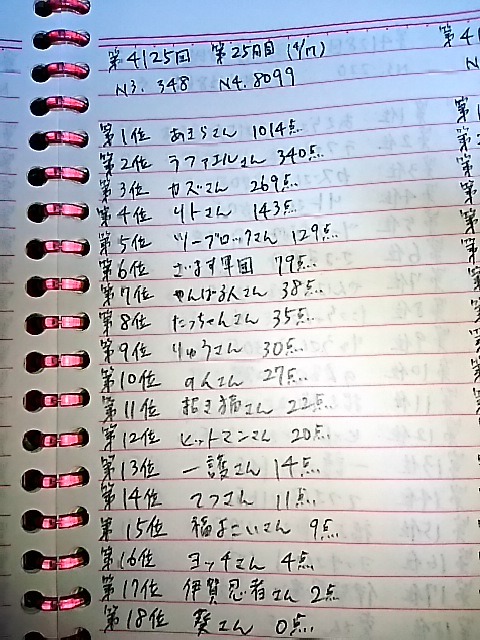 第4125回 第25月目 (4/17)
N3. 348 N4. 8099
第1位 あきらさん 1014点..
第2位 ラファエルさん 340点..
第3位 カズさん 269点..
第4位 リトさん 143点..
第5位 ツーブロックさん 129点..
第6位 ざます軍団 79点..
第7位 やんばる人さん 38点..
第8位 たっちゃんさん 35点..
第9位 りゅうさん 30点..
第10位 のんさん 27点..
第11位 招き猫さん 22点..
第12位 ヒットマンさん 20点..
第13位 一護さん 14点..
第14位 てつさん 11点..
第15位 福よこいさん 9点..
第16位 ヨッチさん 4点..
第17位 伊賀忍者さん 2点
第18位 葵さん 0点..
第41
N